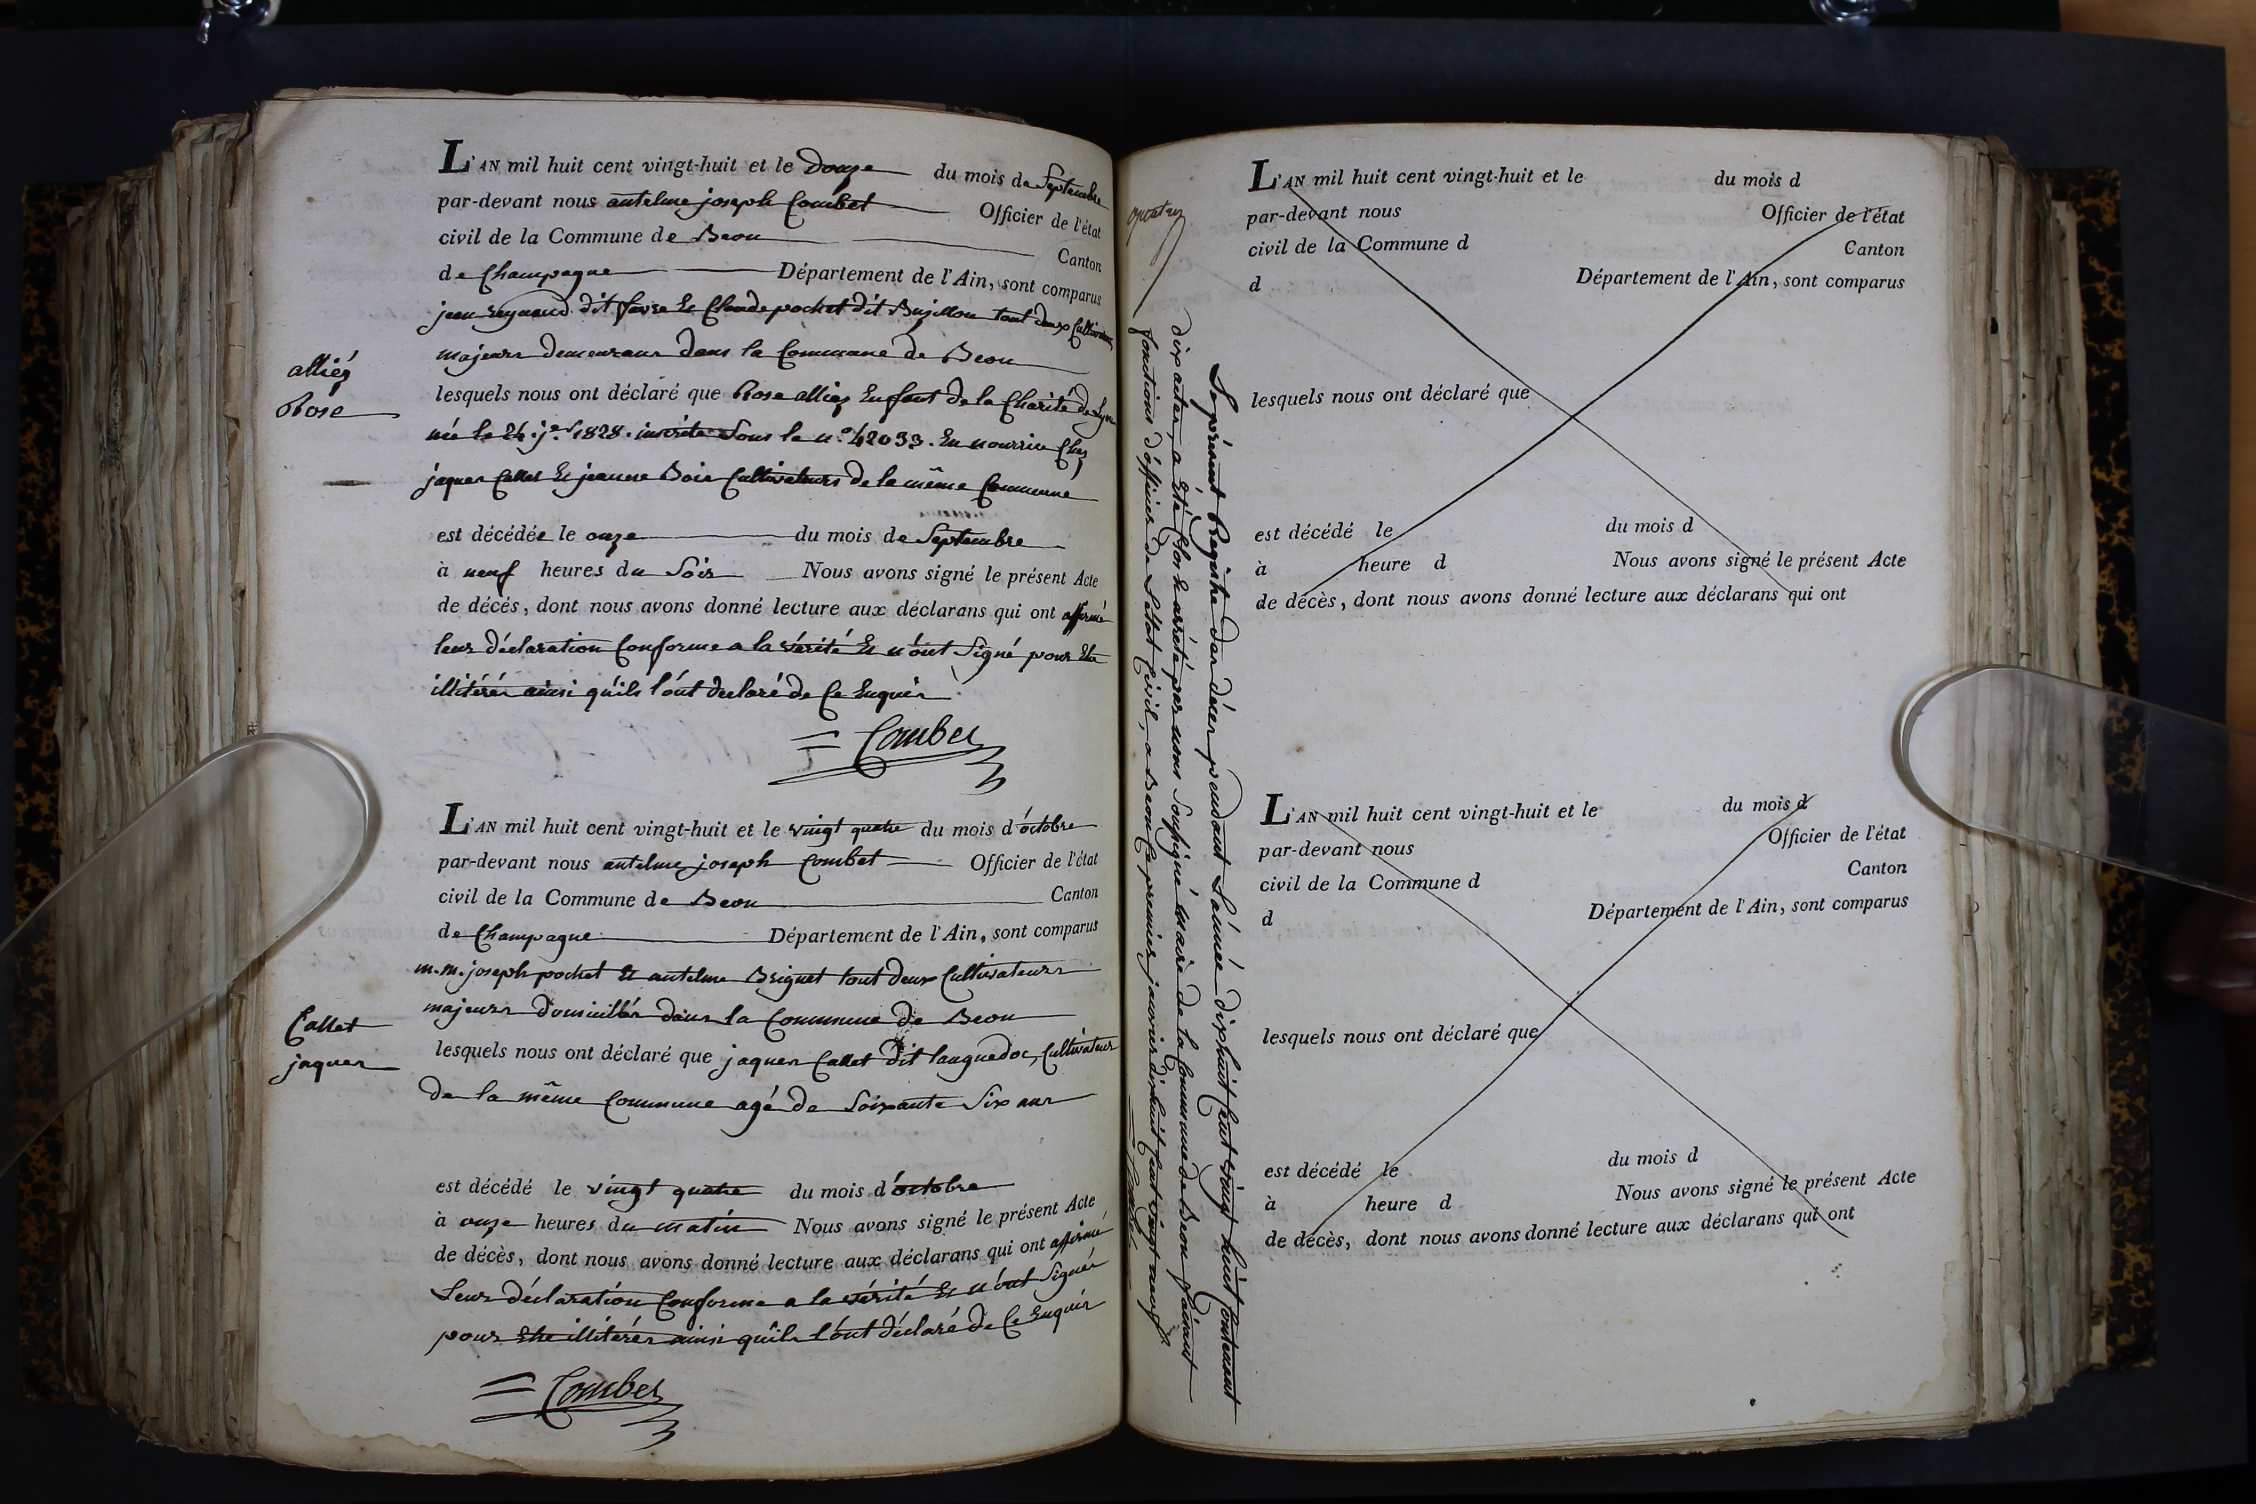 L'AN mil huit cent vingt-huit et le Douze du mois de Septembre
par-devant nous antelme joseph Combet Officier de l'état
civil de la Commune de Beon Canton
de Champagne Département de l'Ain, sont comparus
jean dit favre Et Claude pochet dit Bujillon tout deux Cultivateurs
majeurs demeurans dans la Commune de Beon
alliez
Rose
lesquels nous ont déclaré que Rose alliez Enfant de la Charité de Lyon
née le 24. j.er 1828. inscrite Sous le n.o 42033. En nourrice Chez
jaques Callet Et jeanne Boie Cultivateurs de la même Commune
est décédée le onze du mois de Septembre
à neuf heures du Soir Nous avons signé le présent Acte
de décés, dont nous avons donné lecture aux déclarans qui ont affirmé
leur déclaration Conforme a la vérité Et n'ont Signé pour Etre
illitérés ainsi qu'ils l'ónt declaré de Ce Enquis
Combet
L'AN mil huit cent vingt-huit et le vingt quatre du mois d'óctobre
par-devant nous antelme joseph Combet Officier de l'état
civil de la Commune de Beon Canton
de Champagne Département de l'Ain, sont comparus
m.m. joseph pochet Et antelme Brignet tout deux Cultivateurs
majeurs Domiciliés dans la Commune de Beon
Callet
jaques
lesquels nous ont déclaré que jaques Callet dit languedoc, Cultivateur
de la même Commune agé de Soixante Six ans
est décédé le vingt quatre du mois d'óctobre
à onze heures du matin Nous avons signé le présent Acte
de décès, dont nous avons donné lecture aux déclarans qui ont affirmé
Leur déclaration Conforme a la vérité Et n'ónt Signés
pour Etre illitérés ainsi qu'ils l'ónt déclaré de Ce Enquis
Combet
Le présent Registre des décès pendant L'année dixhuit Cent vingt huit Contenant
dix actes, a Eté Clos Et arrêté par nous Soussigné maire de la Commune de Beon faisant
fonctions d'officier de L'état Civil, a Beon Ce premier janvier dixhuit Cent vingt neuf
Combet
L'AN mil huit cent vingt-huit et le du mois d
par-devant nous Officier de l'état
civil de la Commune d Canton
d Département de l'Ain, sont comparus
lesquels nous ont déclaré que
est décédé le du mois d
à heure d Nous avons signé le présent Acte
de décès, dont nous avons donné lecture aux déclarans qui ont
L'AN mil huit cent vingt-huit et le du mois d
par-devant nous Officier de l'état
civil de la Commune d Canton
d Département de l'Ain, sont comparus
lesquels nous ont déclaré que
est décédé le du mois d
à heure d Nous avons signé le présent Acte
de décès, dont nous avons donné lecture aux déclarans qui ont